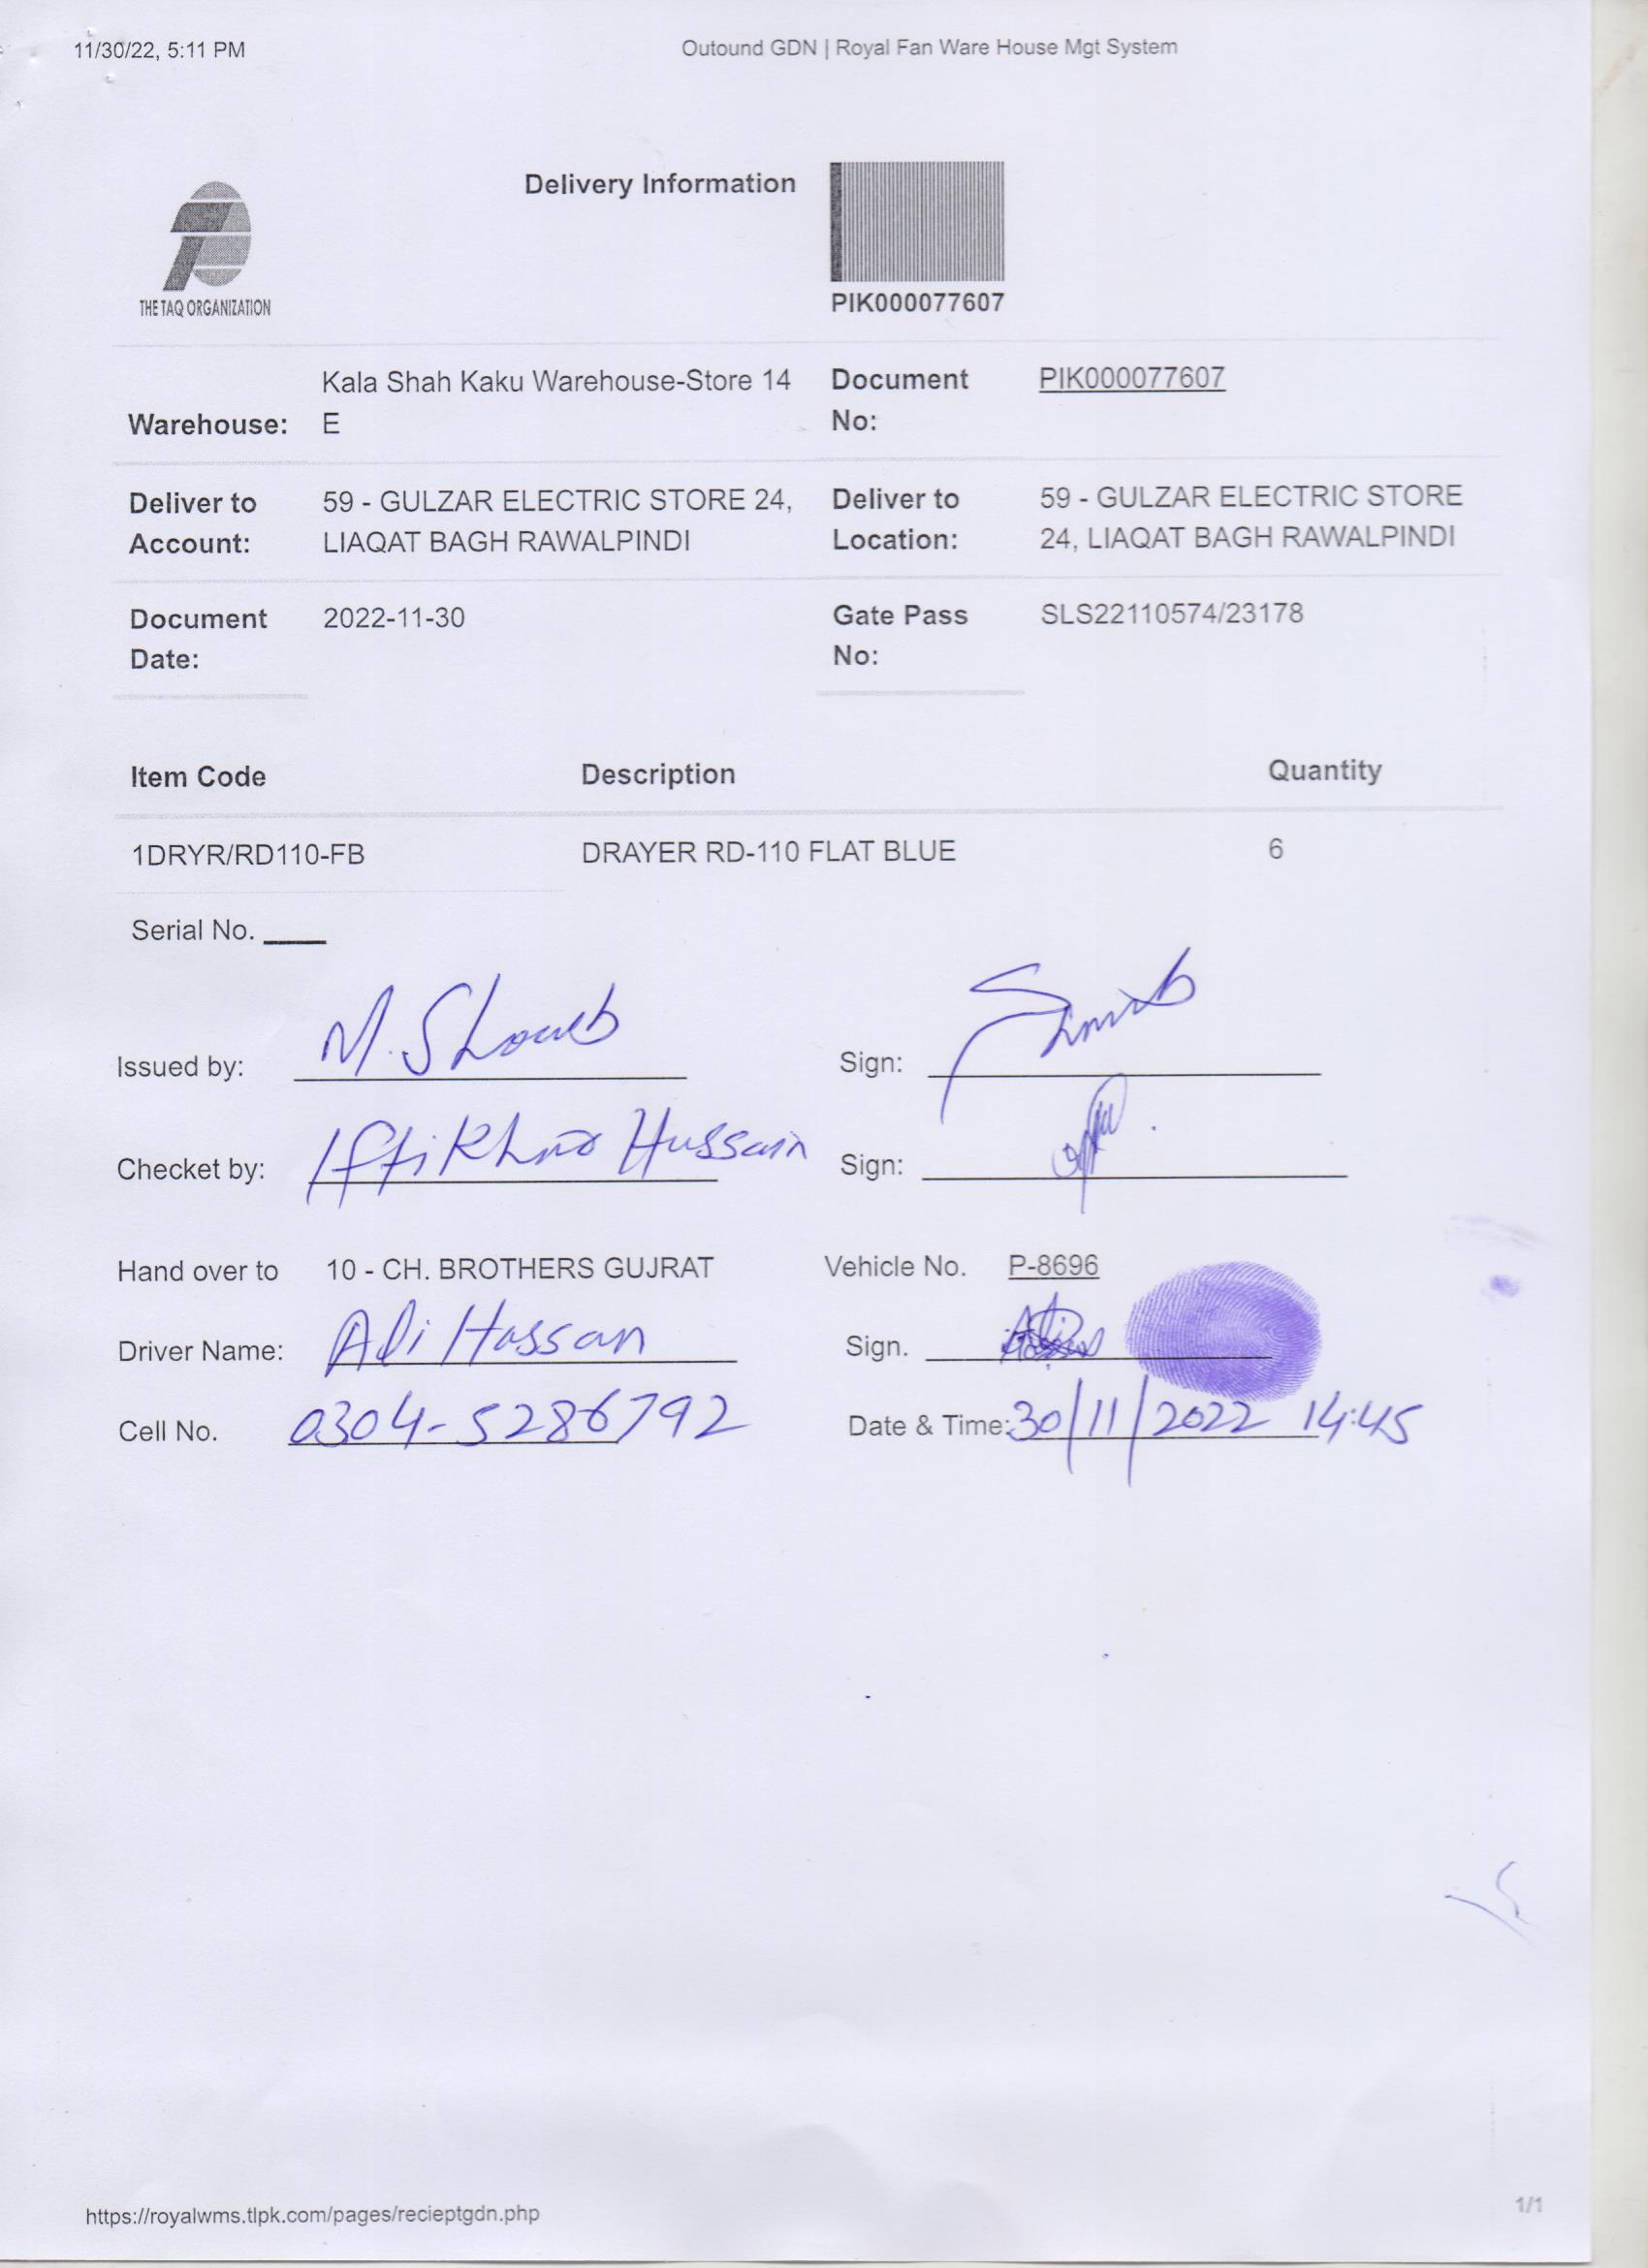 11/30/22, 5:11 PM
Outound GDN | Royal Fan Ware House Mgt System
Delivery Information
THE TAQ ORGANIZATION
PIK000077607
Warehouse: Kala Shah Kaku Warehouse-Store 14 E
Document No: PIK000077607
Deliver to Account: 59 - GULZAR ELECTRIC STORE 24, LIAQAT BAGH RAWALPINDI
Deliver to Location: 59 - GULZAR ELECTRIC STORE 24, LIAQAT BAGH RAWALPINDI
Document Date: 2022-11-30
Gate Pass No: SLS22110574/23178
Item Code Description Quantity
1DRYR/RD110-FB DRAYER RD-110 FLAT BLUE 6
Serial No.
Issued by: M. Shoueb Sign:
Checket by: Iftikhar Hussain Sign:
Hand over to 10 - CH. BROTHERS GUJRAT Vehicle No. P-8696
Driver Name: Ali Hassan Sign.
Cell No. 0304-5286792 Date & Time: 30/11/2022 14:45
https://royalwms.tlpk.com/pages/recieptgdn.php
1/1